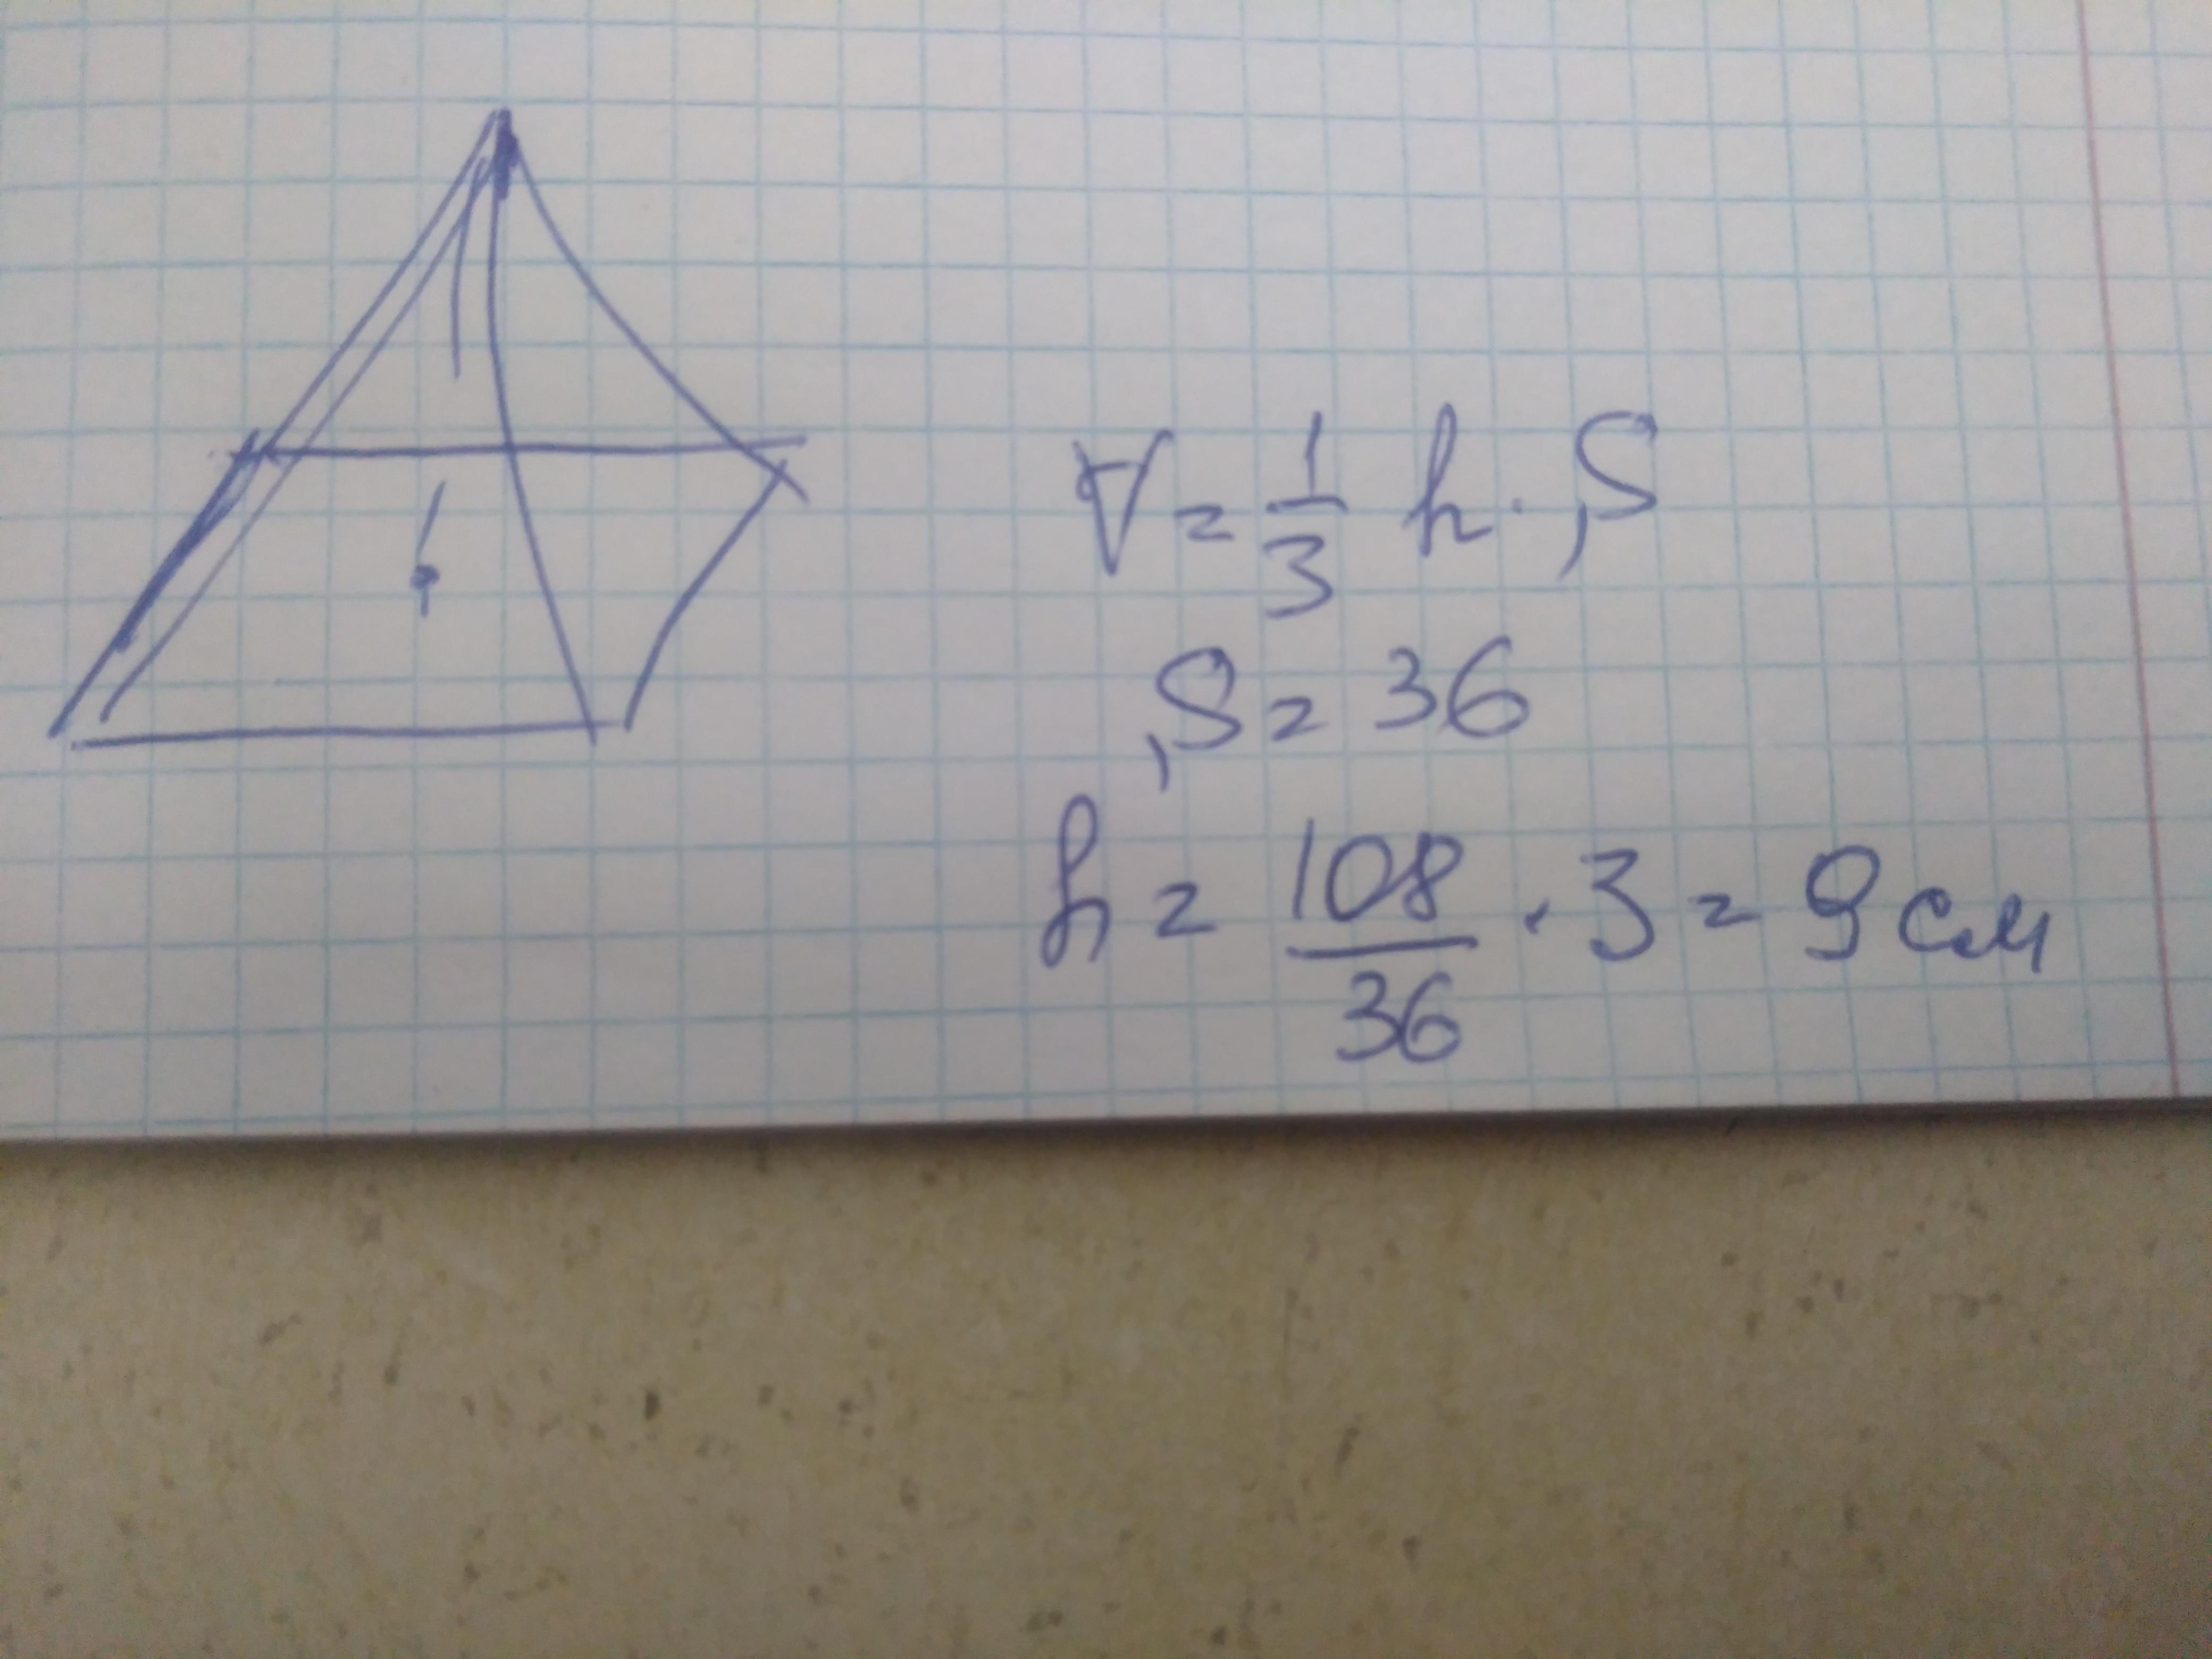 V = 1/3 h · S
S = 36
h = 108/36 · 3 = 9 см